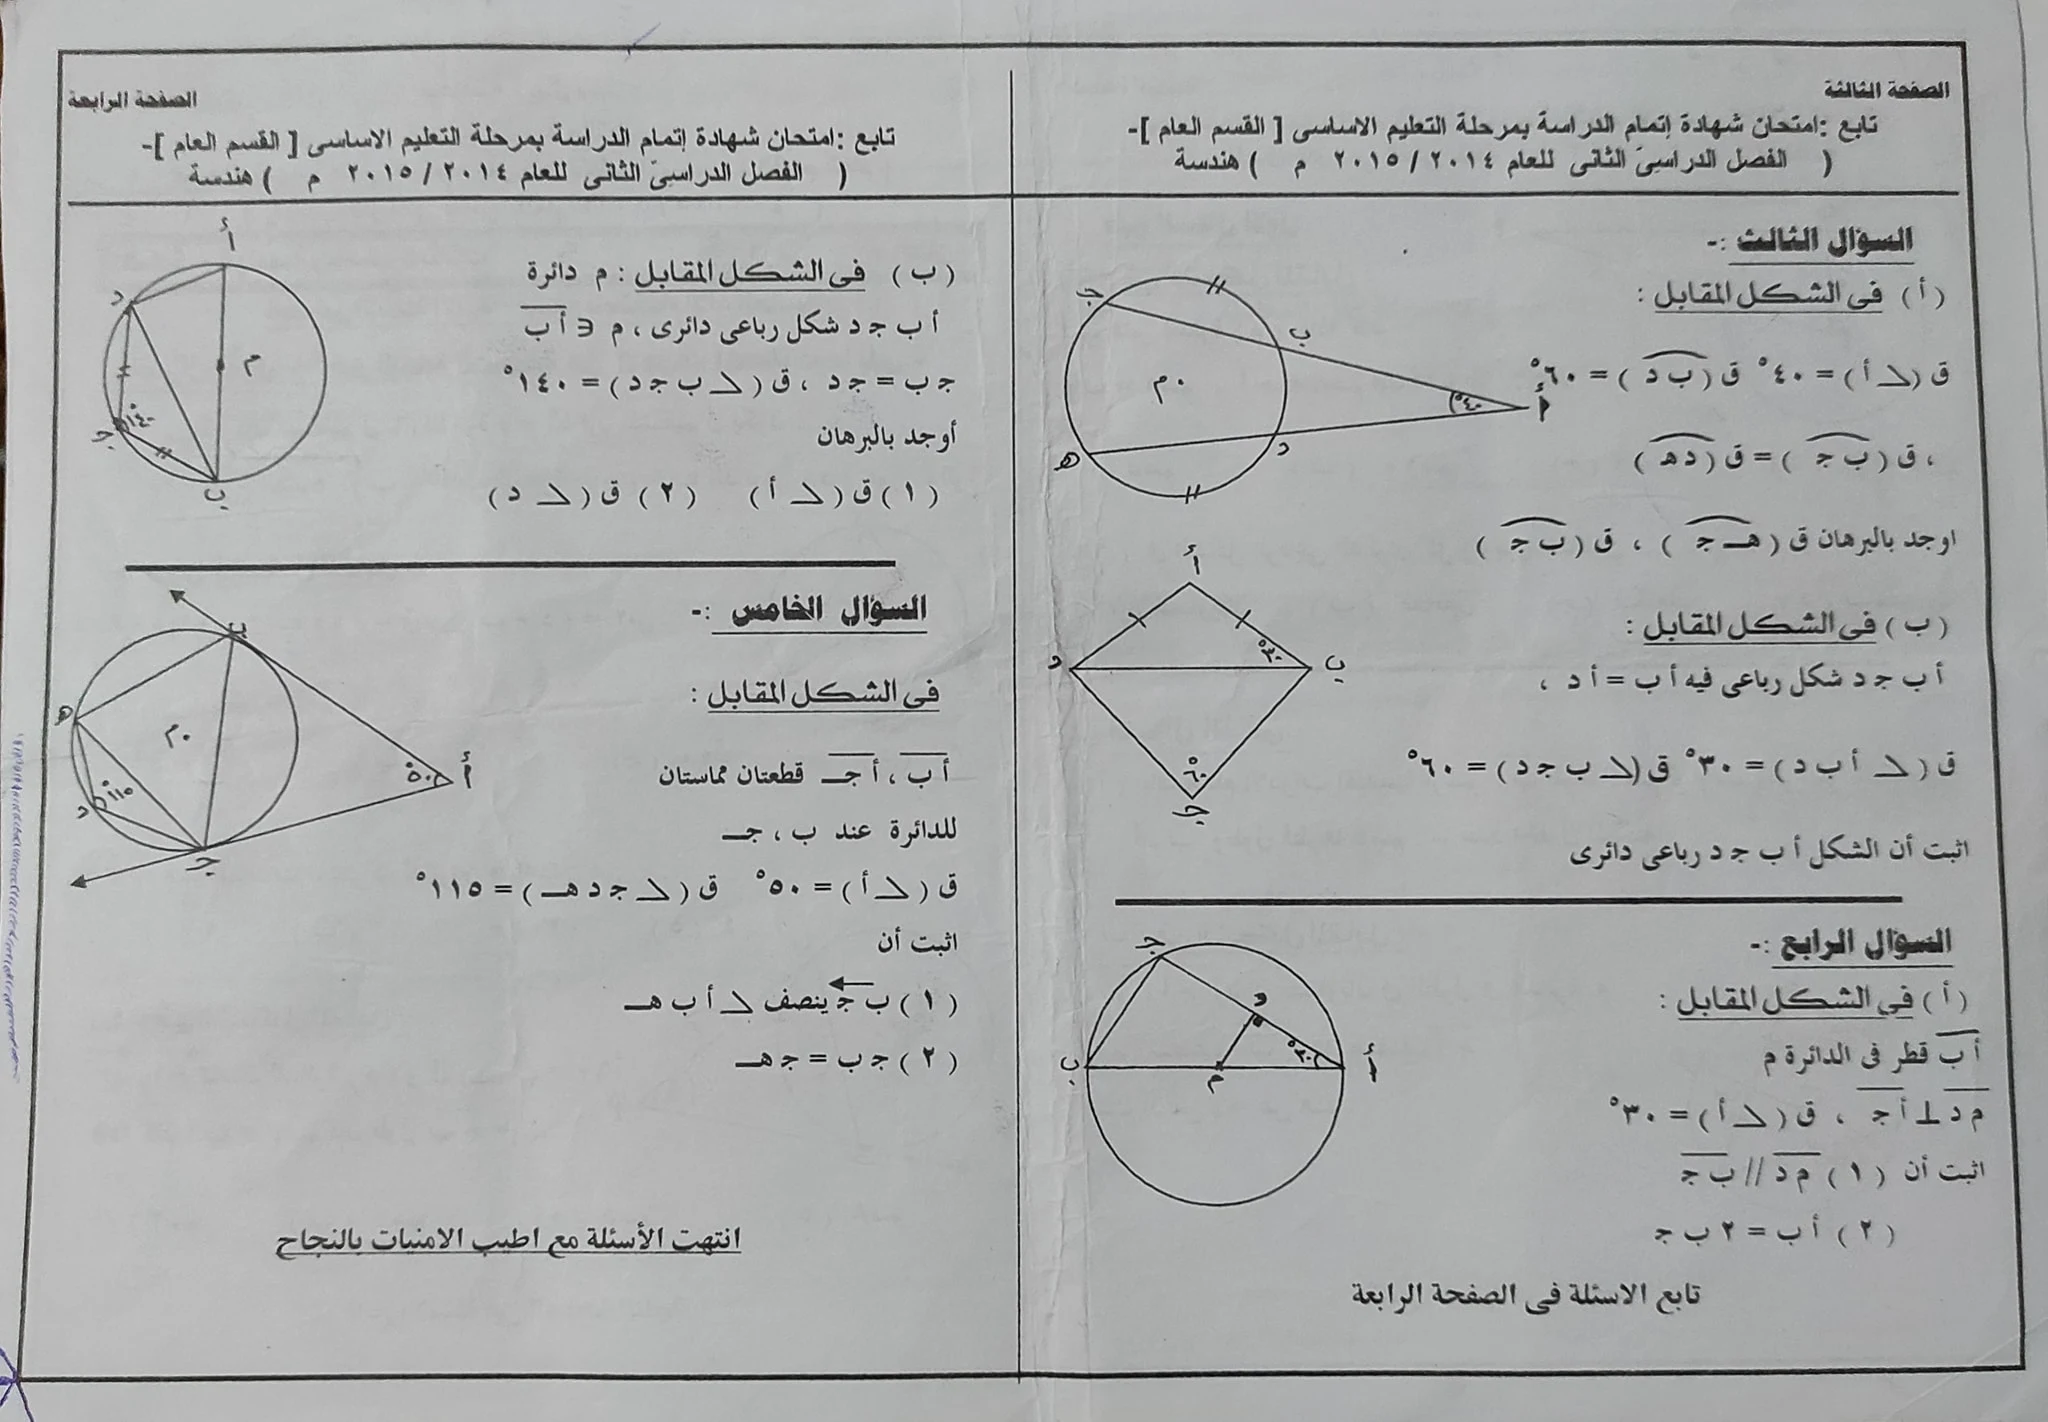 الصفحة الثالثة
تابع :امتحان شهادة إتمام الدراسة بمرحلة التعليم الاساسى [ القسم العام ]-
( الفصل الدراسىّ الثانى للعام ٢٠١٤ / ٢٠١٥ م ) هندسة
السؤال الثالث :-
( أ ) فى الشكل المقابل :
ق ( ∠ أ ) = ٤٠° ق ( ب د ) = ٦٠°
، ق ( ب جـ ) = ق ( د هـ )
اوجد بالبرهان ق ( هـ جـ ) ، ق ( ب جـ )
جـ
ب
م
٤٠°
أ
هـ
د
( ب ) فى الشكل المقابل :
أ ب جـ د شكل رباعى فيه أ ب = أ د ،
ق ( ∠ أ ب د ) = ٣٠° ق ( ∠ ب جـ د ) = ٦٠°
اثبت أن الشكل أ ب جـ د رباعى دائرى
أ
٣٠°
د
ب
٦٠°
جـ
السؤال الرابع :-
( أ ) فى الشكل المقابل :
أ ب قطر فى الدائرة م
م د ⊥ أ جـ ، ق ( ∠ أ ) = ٣٠°
اثبت أن ( ١ ) م د // ب جـ
( ٢ ) أ ب = ٢ ب جـ
جـ
د
٣٠°
ب
م
أ
تابع الاسئلة فى الصفحة الرابعة
الصفحة الرابعة
تابع :امتحان شهادة إتمام الدراسة بمرحلة التعليم الاساسى [ القسم العام ]-
( الفصل الدراسىّ الثانى للعام ٢٠١٤ / ٢٠١٥ م ) هندسة
( ب ) فى الشكل المقابل : م دائرة
أ ب جـ د شكل رباعى دائرى ، م ∈ أ ب
جـ ب = جـ د ، ق ( ∠ ب جـ د ) = ١٤٠°
أوجد بالبرهان
( ١ ) ق ( ∠ أ ) ( ٢ ) ق ( ∠ د )
أ
د
م
١٤٠°
جـ
ب
السؤال الخامس :-
فى الشكل المقابل :
أ ب ، أ جـ قطعتان مماستان
للدائرة عند ب ، جـ
ق ( ∠ أ ) = ٥٠° ق ( ∠ جـ د هـ ) = ١١٥°
اثبت أن
( ١ ) ب جـ ينصف ∠ أ ب هـ
( ٢ ) جـ ب = جـ هـ
ب
هـ
م
٥٠°
أ
١١٥°
د
جـ
انتهت الأسئلة مع اطيب الامنيات بالنجاح